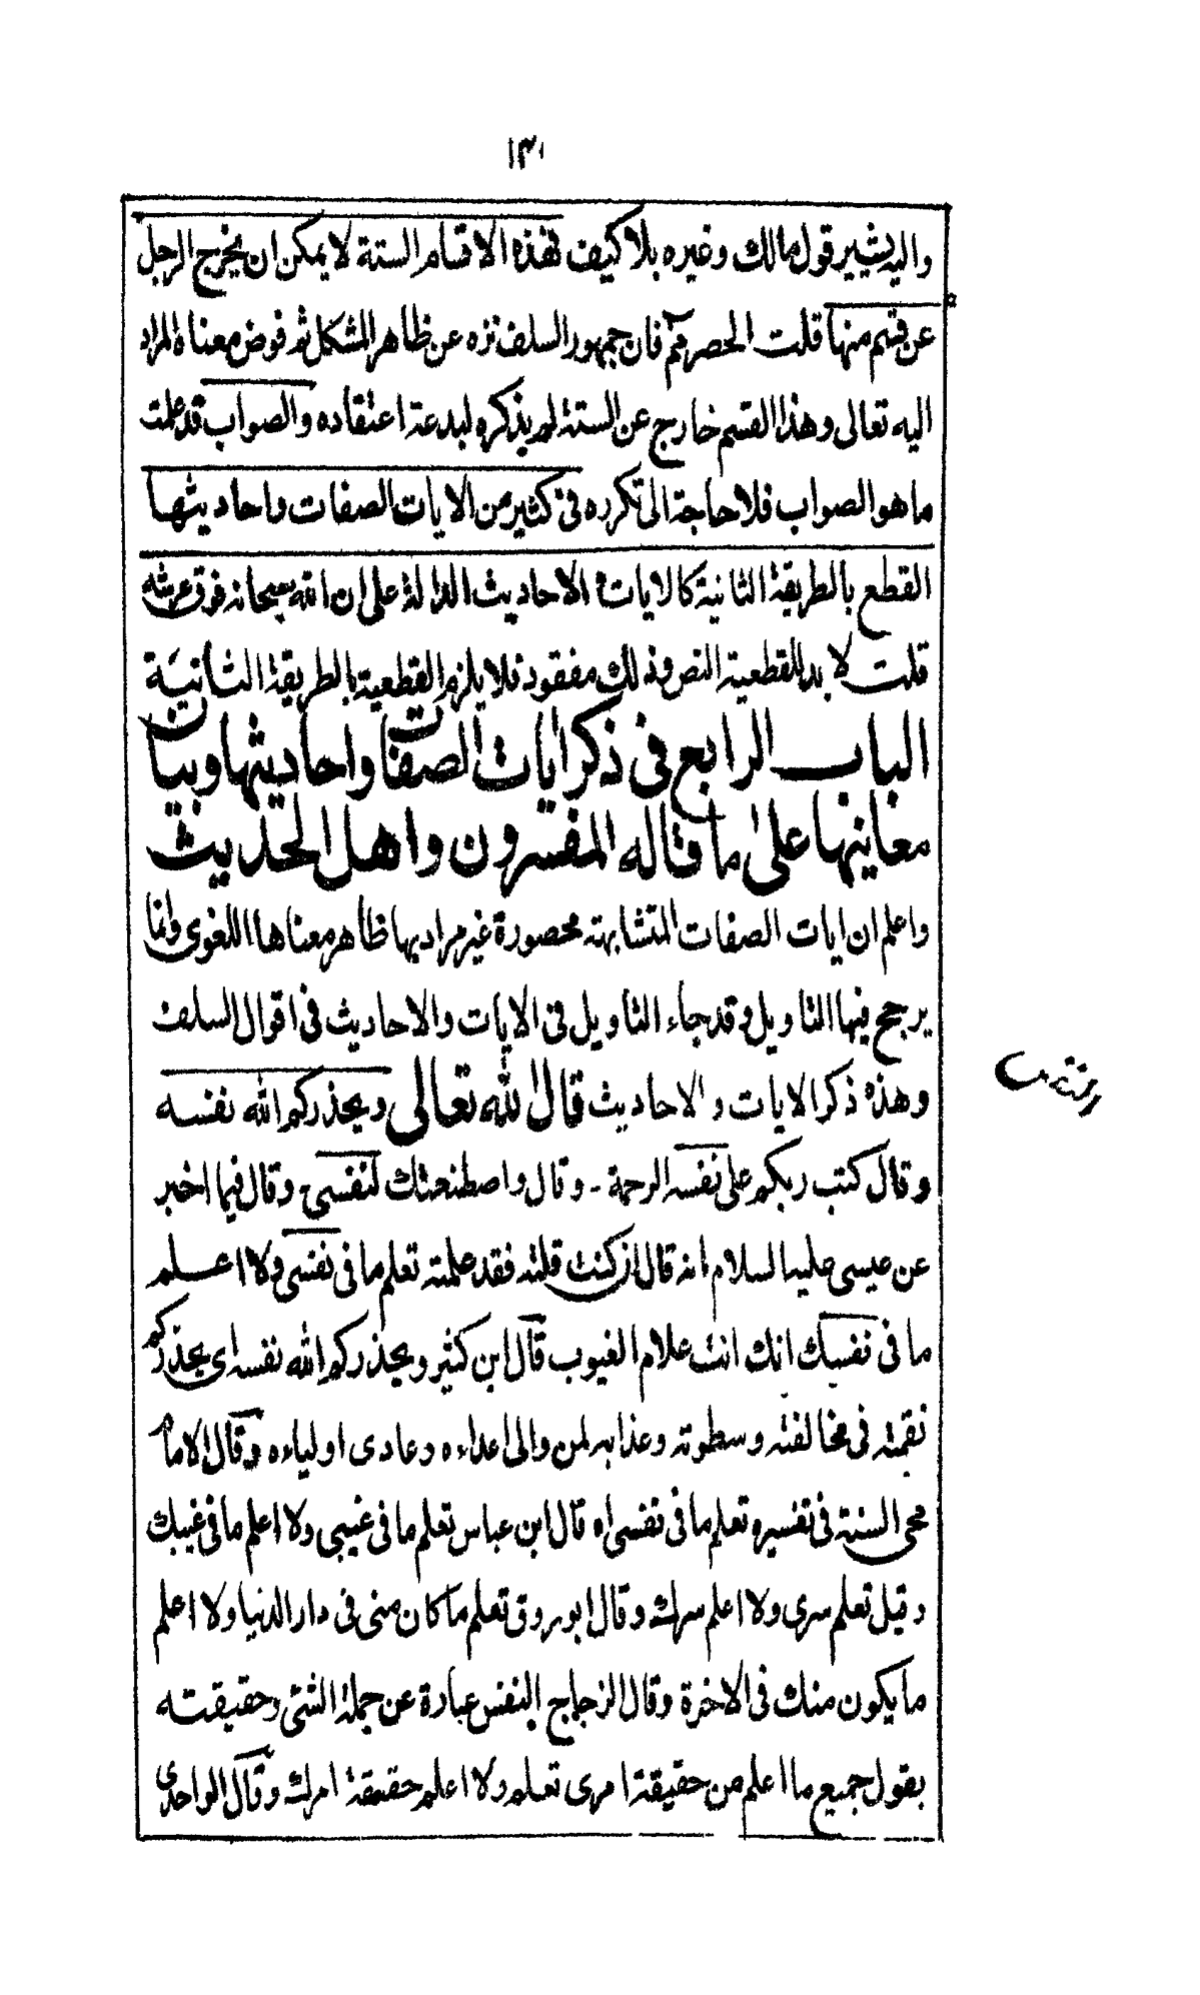 ١٣١
واليه يشير قول مالك وغيره بلا كيف فهذه الاقسام الستة لا يمكن ان يخرج الرجل
عن قسم منها قلت الحصر مم فان جمهور السلف نزه عن ظاهر المشكل ثم فوض معناه المراد
اليه تعالى وهذا القسم خارج عن الستة لم يذكره لبدعة اعتقاده والصواب قد علمت
ما هو الصواب فلا حاجة الى تكرره فى كثير من الايات الصفات واحاديثها
القطع بالطريقة الثانية كالايات الاحاديث الدالة على ان الله سبحانه فوق عرشه
قلت لا بد للقطعية النص وذلك مفقود فلا يلزم القطعية بالطريقة الثانية
الباب الرابع فى ذكر ايات الصفات واحاديثها وبيان
معانيها على ما قاله المفسرون واهل الحديث
واعلم ان ايات الصفات المتشابهة محصورة غير مراد بها ظاهر معناها اللغوى وانما
يرجح فيها التاويل وقد جاء التاويل فى الايات والاحاديث فى اقوال السلف
وهذه ذكر الايات والاحاديث قال الله تعالى ويحذركم الله نفسه
النفس
وقال كتب ربكم على نفسه الرحمة - وقال واصطنعتك لنفسى - وقال فيما اخبر
عن عيسى عليه السلام انه قال ان كنت قلته فقد علمته تعلم ما فى نفسى ولا اعلم
ما فى نفسك انك انت علام الغيوب قال ابن كثير ويحذركم الله نفسه اى يحذركم
نقمته فى مخالفته وسطوته وعذابه لمن والى اعداءه وعادى اولياءه وقال الامام
محى السنة فى تفسيره تعلم ما فى نفسى اه قال ابن عباس تعلم ما فى غيبى ولا اعلم ما فى غيبك
وقيل تعلم سرى ولا اعلم سرك وقال ابو روق تعلم ما كان منى فى دار الدنيا ولا اعلم
ما يكون منك فى الاخرة وقال الزجاج النفس عبارة عن جملة الشئ وحقيقته
بقول جميع ما اعلم من حقيقة امرى تعلم ولا اعلم حقيقة امرك وقال الواحدى